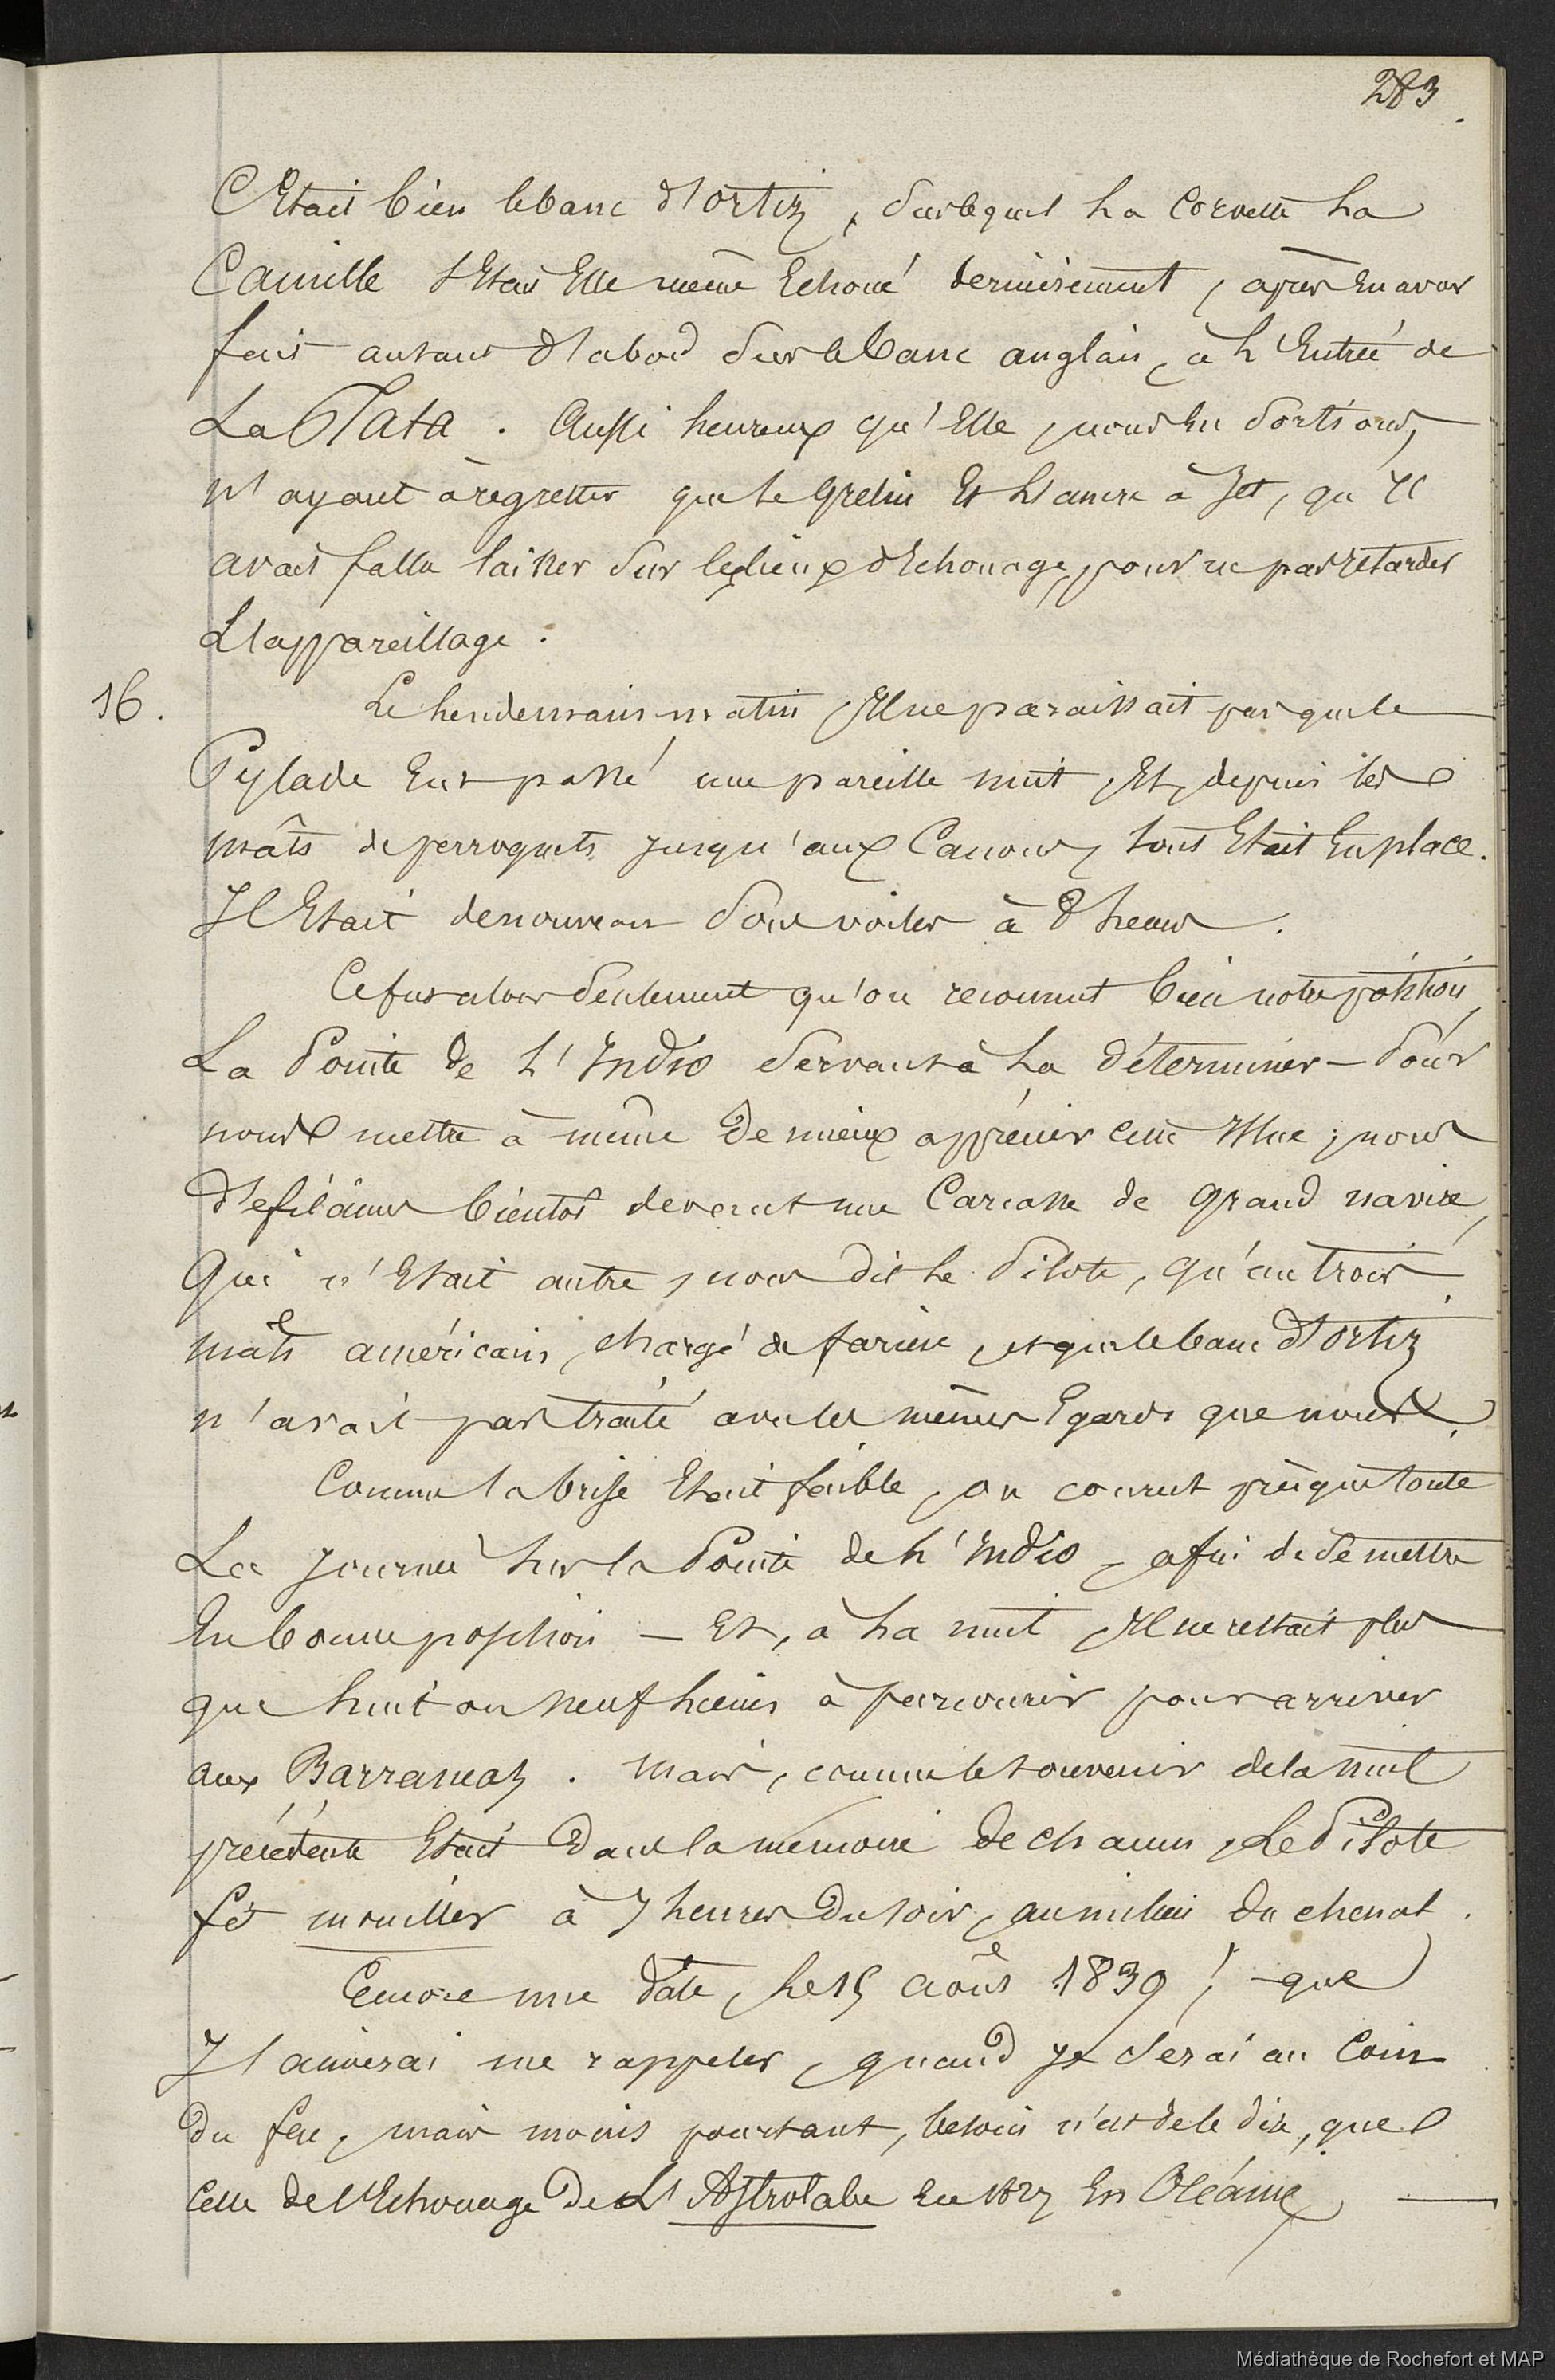 283.
C'Etait bien le banc d'ortiz, sur lequel la Corvette la
Camille s'Etait Elle même Echoué dernièrement, après En avoir
fait autant d'abord sur le banc anglais, à l'Entrée de
La Plata. Aussi heureux qu'Elle, nous En sortions,
n'ayant à regretter que le grelin Et l'ancre à Jet, qu'Il
avait fallu laisser sur les lieux d'Echouage, pour ne pas retarder
L'appareillage.
16. Le lendemain matin, Il ne paraissait pas que le
Pylade Eut passé une pareille nuit, Et, depuis les
mâts de perroquets jusqu'aux Canons, tout Etait En place.
Il Etait de nouveau sous voiles à 8 heures.
Ce fut alors seulement qu'on reconnut bien notre position,
La Pointe de l'Indio servant à la déterminer — Pour
nous mettre à même de mieux apprécier cette Issue, nous
défilâmes bientôt devant une Carcasse de grand navire,
Qui n'Etait autre, nous dit le Pilote, qu'un trois
mâts américain, chargé de farine, et que le banc d'Ortiz
n'avait pas traité avec les mêmes Egards que nous.
Comme la brise Etait faible, on courut presque toute
La journée sur la Pointe de l'Indio, afin de se mettre
En bonne position — Et, à la nuit, Il ne restait plus
que huit ou neuf lieues à parcourir pour arriver
aux Barrancas. Mais, comme le souvenir de la nuit
précédente Etait dans la mémoire de chacun, Le Pilote
fit mouiller à 7 heures du soir, au milieu du chenal.
Encore une date, le 15 août 1839, que
J'aimerai me rappeler, quand je serai au Coin
du feu, mais moins pourtant, besoin n'est de le dire, que
Celle de l'Echouage de L'Astrolabe En 1827 En Océanie, —
Médiathèque de Rochefort et MAP